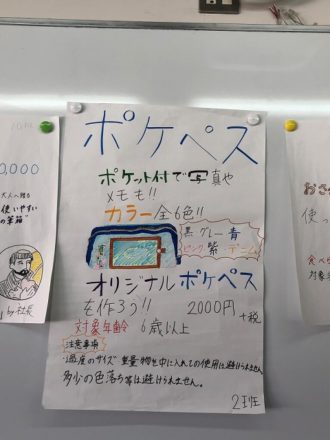 ポケペス
ポケット付で写真や
メモも!!
カラー全6色!!
黒 グレー 青
ピンク 紫 デニム
オリジナルポケペス
を作ろう!! 2000円
+税
対象年齢 6歳以上
注意事項
・過度のサイズ 重量物を中に入れての使用は避けられません。
多少の色落ち等は避けられません。
0,000
大人へ贈る
使いやすい
の筆箱"
by 社長
おさ
使っ
食べら
対象